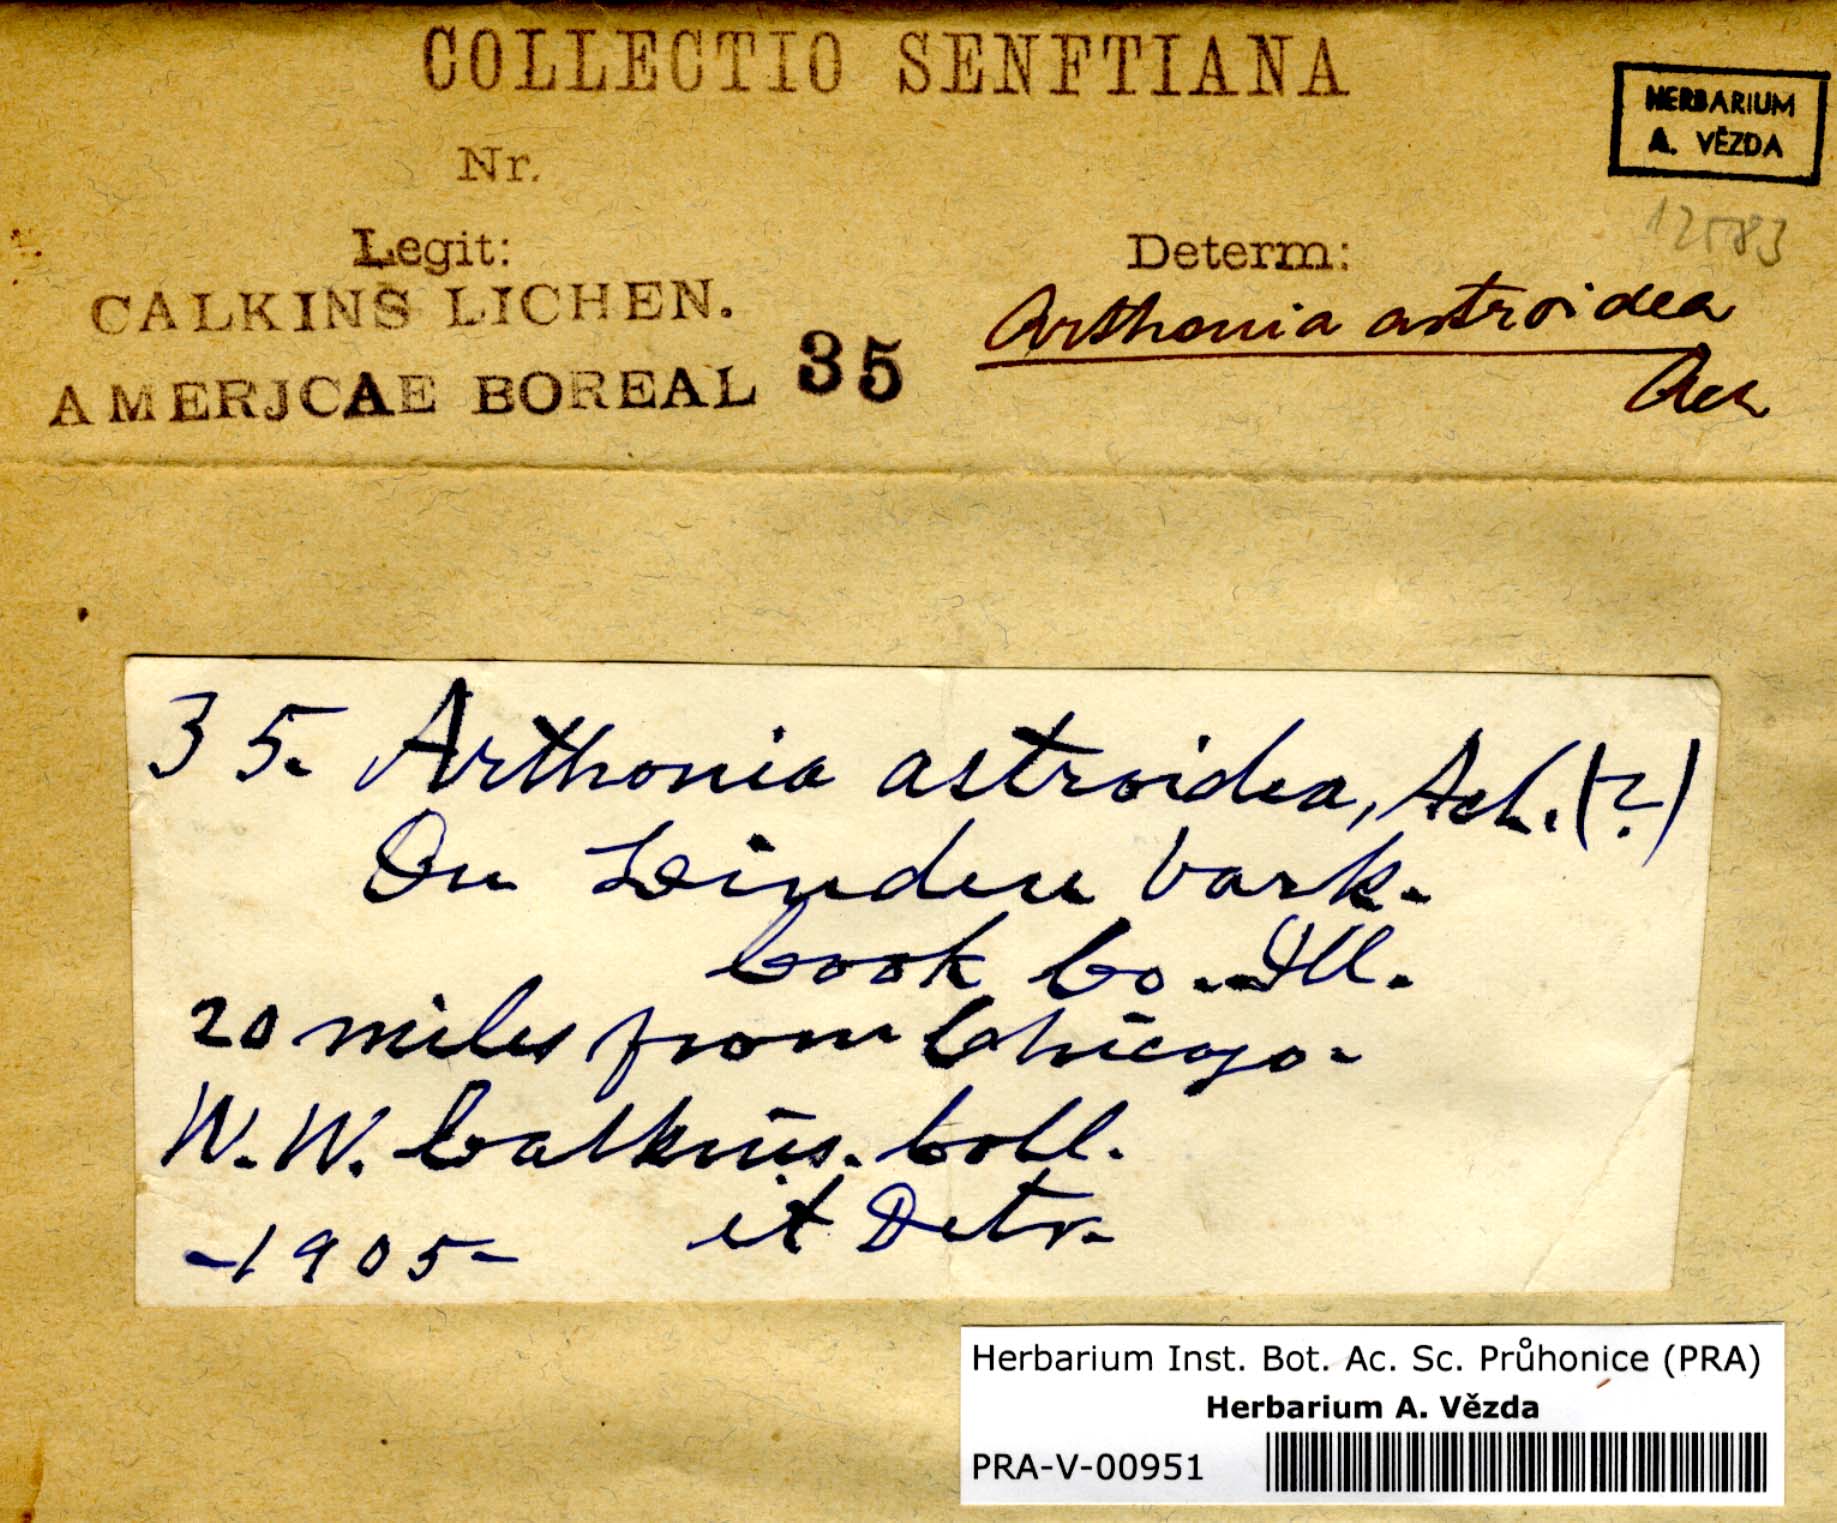 COLLECTIO SENFTIANA
HERBARIUM
A. VĚZDA
Nr.
12583
Legit:
Determ:
CALKINS LICHEN.
AMERJCAE BOREAL 35
Arthonia astroidea
Ach
35. Arthonia astroidea, Ach. (?)
On Linden bark.
Cook Co. Ill.
20 miles from Chicago.
W. W. Calkins. Coll.
et Detr.
-1905-
Herbarium Inst. Bot. Ac. Sc. Průhonice (PRA)
Herbarium A. Vězda
PRA-V-00951